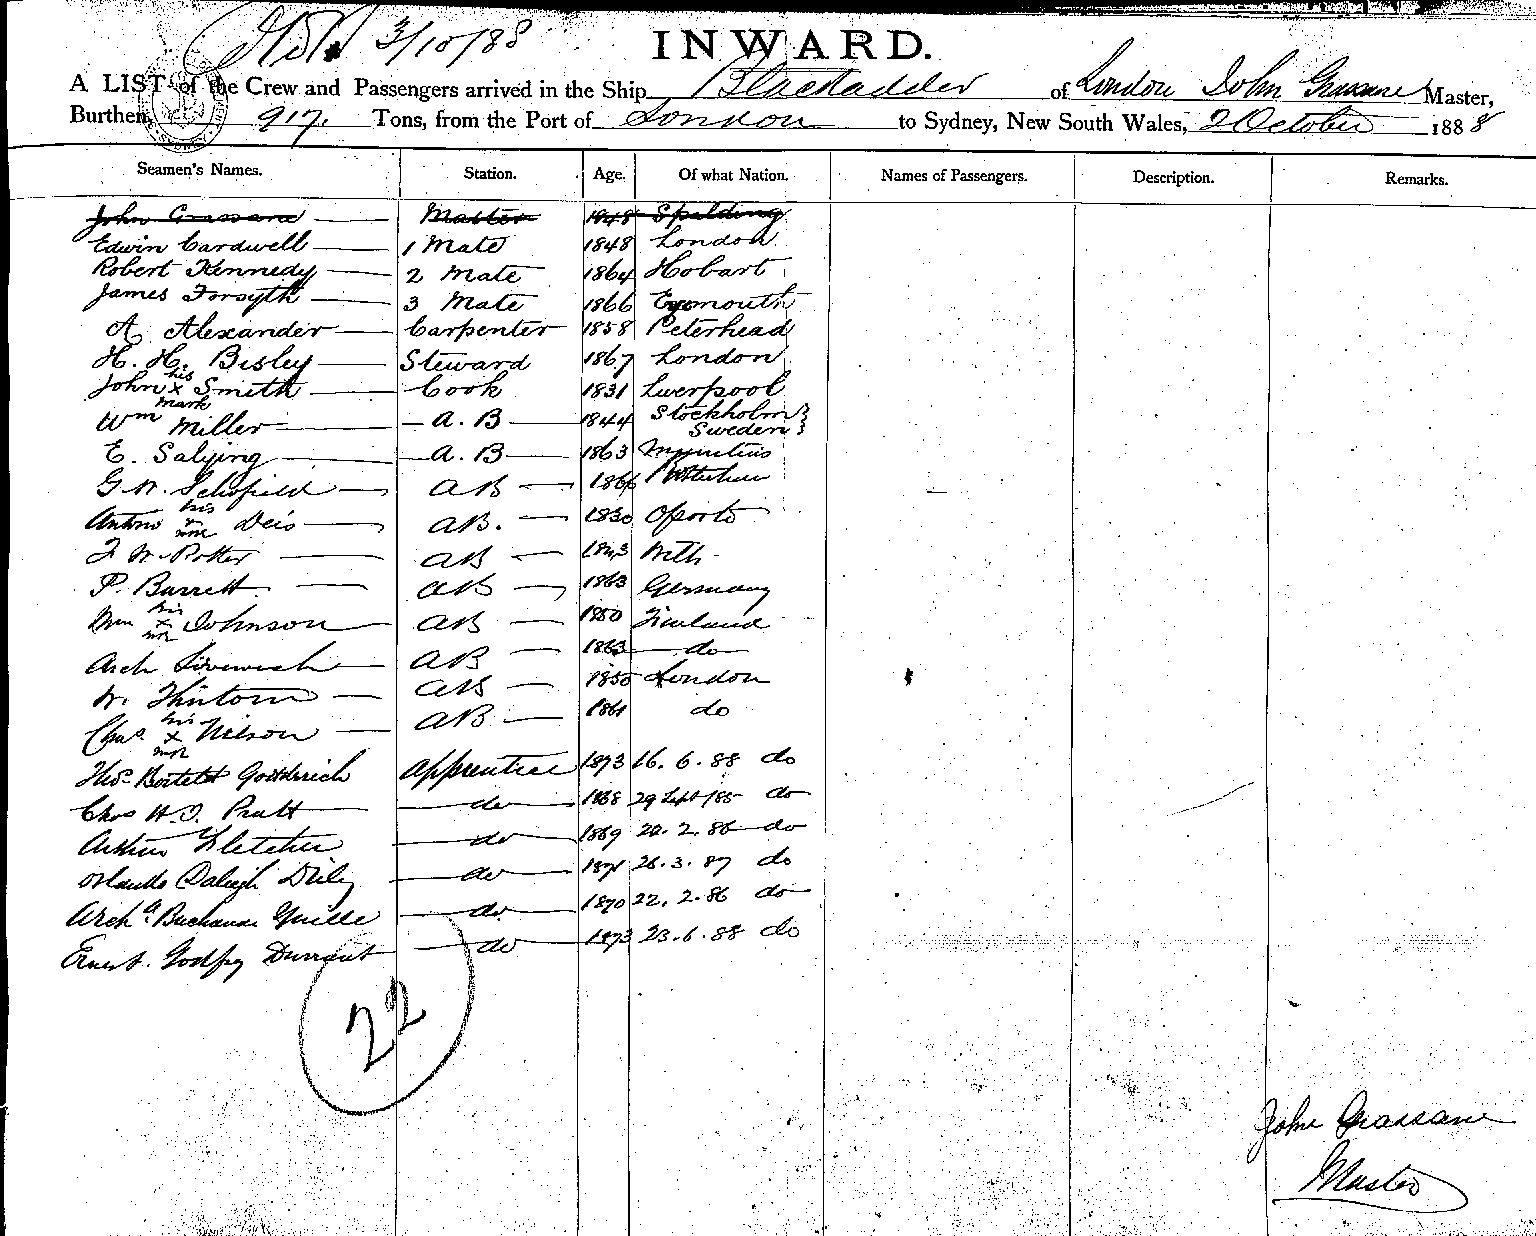 3/10/88
INWARD.
A LIST of the Crew and Passengers arrived in the Ship Blackadder of London John Grassane Master,
Burthen, 917. Tons, from the Port of London to Sydney, New South Wales, 2 October 1888
Seamen's Names. Station. Age. Of what Nation. Names of Passengers. Description. Remarks.
John Grassane Master 1848 Spalding
Edwin Cardwell 1 Mate 1848 London
Robert Kennedy 2 Mate 1864 Hobart
James Forsyth 3 Mate 1866 Eyemouth
A. Alexander Carpenter 1858 Peterhead
H. H. Bisley Steward 1867 London
John his x mark Smith Cook 1831 Liverpool
Wm Miller A.B 1844 Stockholm Sweden
E. Saljing A.B 1863 Mauritius
G. W. Schofield AB 1866
Antonio his x mk Deis AB. 1830 Oporto
F W. Potter AB 1843
P. Barrett AB 1863 Germany
Wm his x mk Johnson AB 1850 Finland
Arch AB 1863 do
W. Thintorn AB 1855 London
Chas his x mk Nilson AB 1861 do
Thos Goodrich Apprentice 1873 16. 6. 88 do
Chas H. J. Pratt do 1868 29 Sept /85 do
Arthur Fletcher do 1869 22. 2. 86 do
Orlando Raleigh do 1871 26. 3. 87 do
Archd Buchanan do 1870 22. 2. 86 do
Ernest Godfrey Durrant do 1873 23. 6. 88 do
22
John Grassane
Master